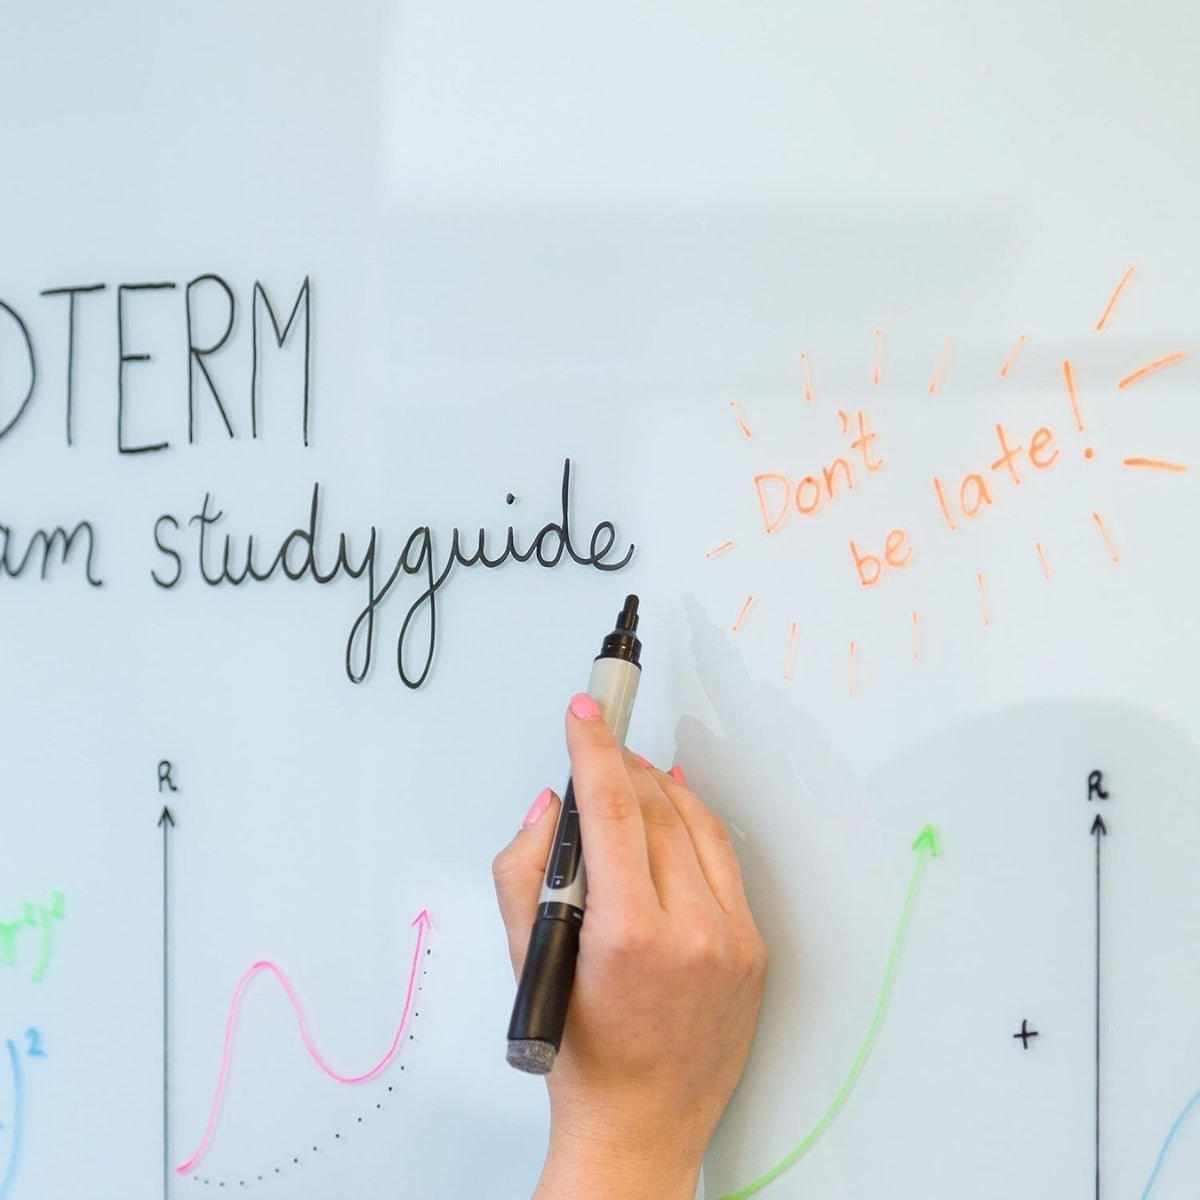 DTERM
am studyguide
Don't
be late!
R
R
)²
2
+